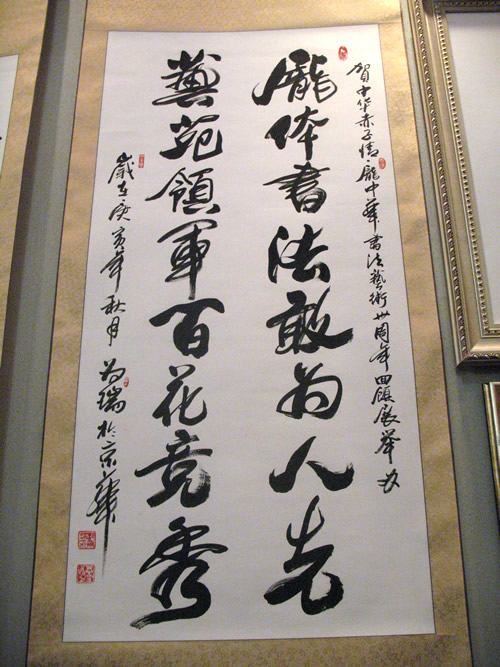 賀中华赤子情·龐中華書法藝術卅周年回顧展舉办
龐体書法敢为人先
藝苑領軍百花競秀
歲在庚寅年秋月为瑞於京華